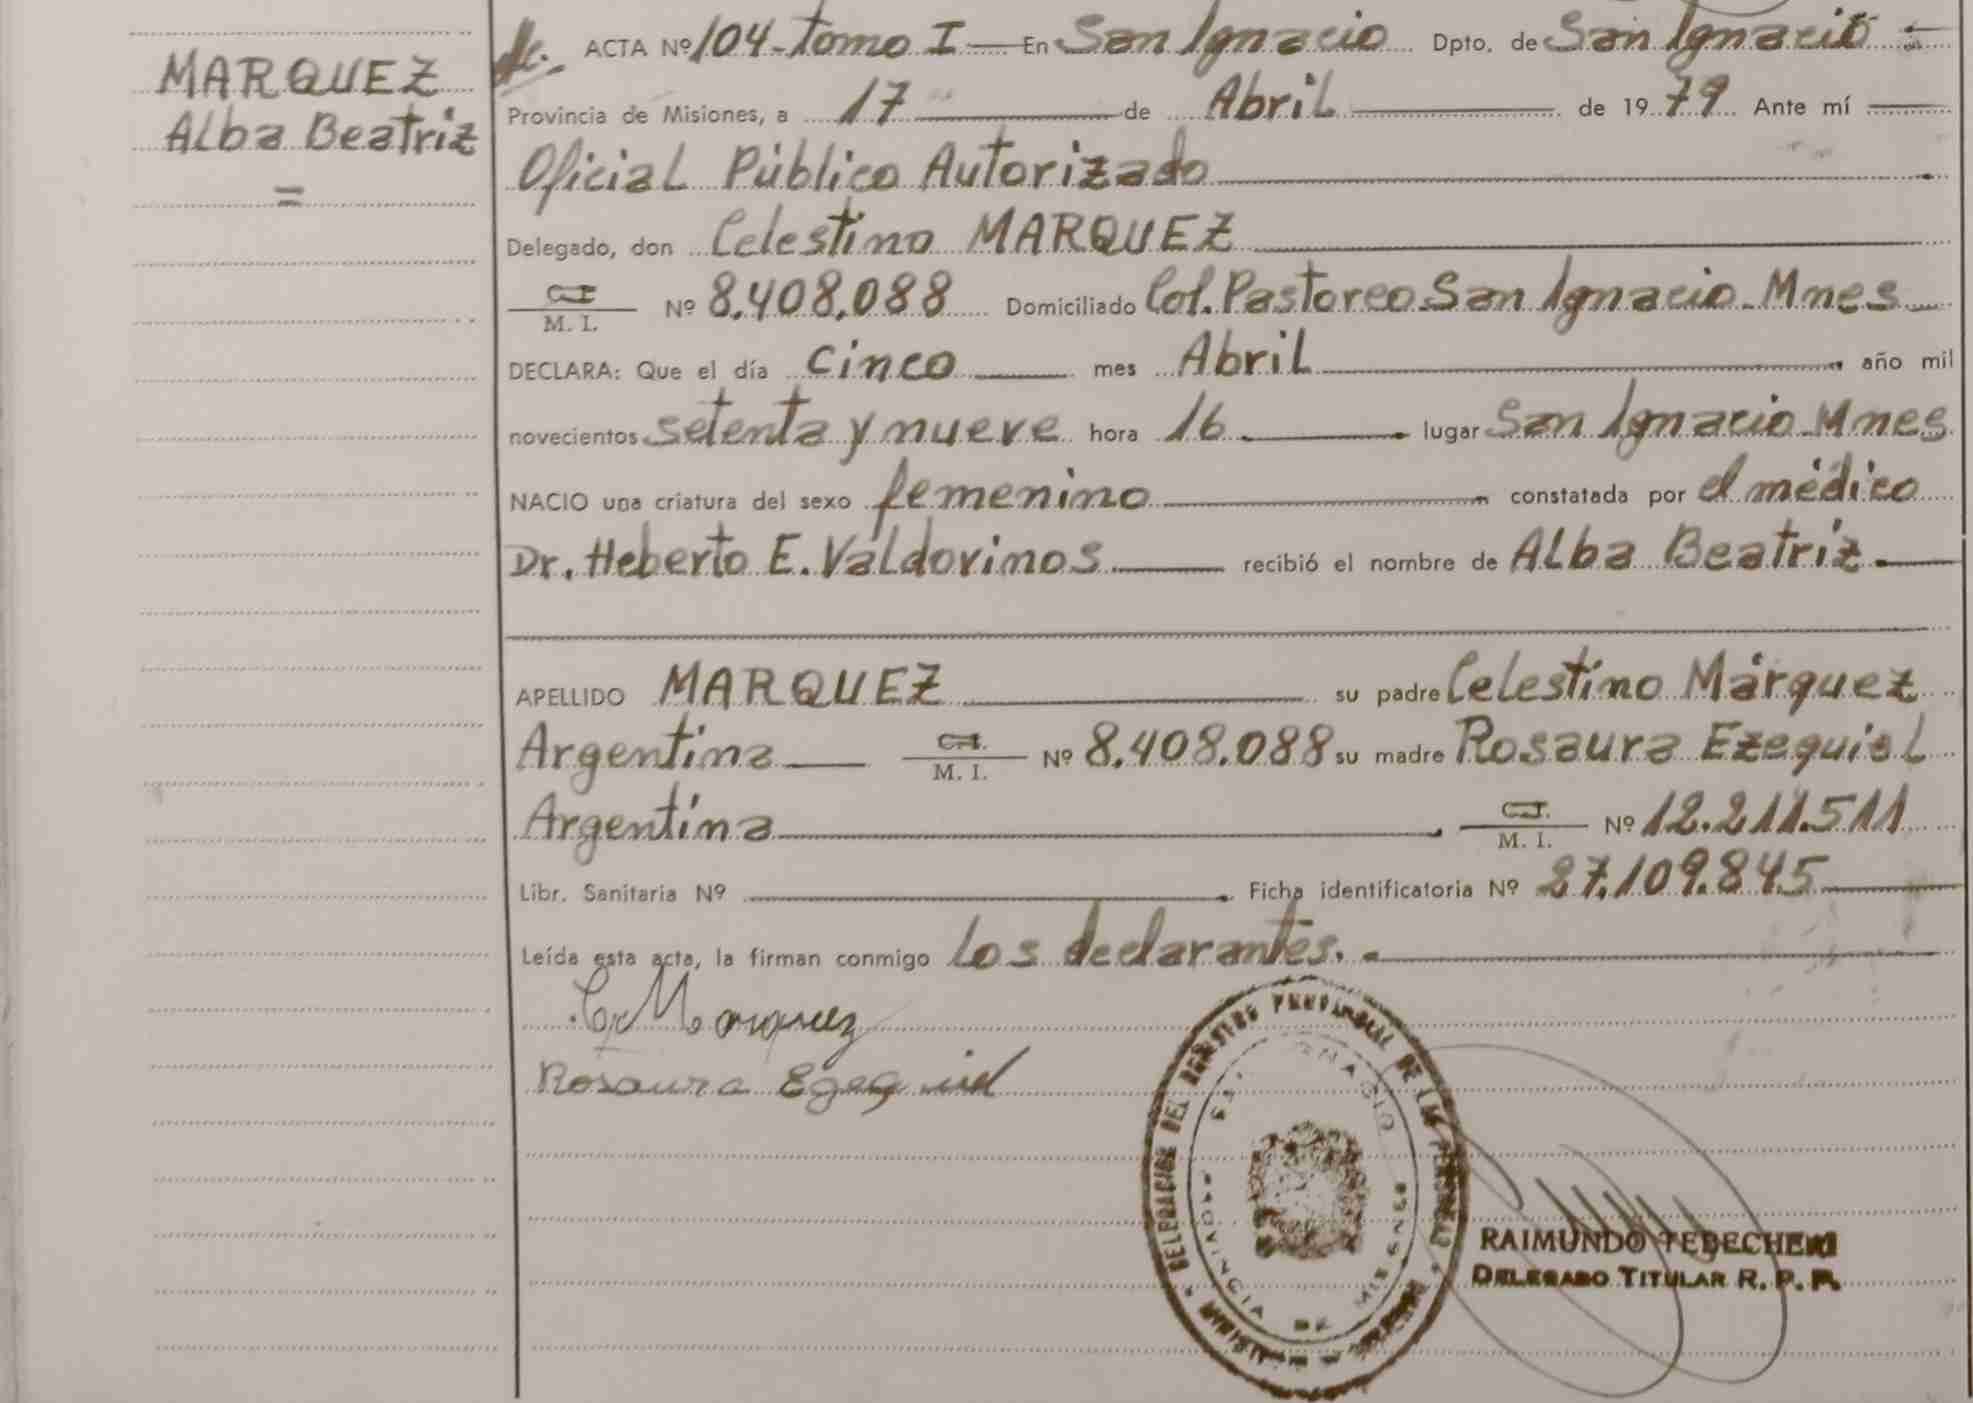 MARQUEZ
Alba Beatriz
=
ACTA Nº 104-Tomo I — En San Ignacio Dpto. de San Ignacio
Provincia de Misiones, a 17 de Abril de 1979 Ante mí
Oficial Público Autorizado
Delegado, don Celestino MARQUEZ
C.I. M. I. Nº 8.408.088 Domiciliado Col. Pastoreo San Ignacio - Mnes
DECLARA: Que el día cinco mes Abril año mil
novecientos setenta y nueve hora 16 lugar San Ignacio - Mnes
NACIO una criatura del sexo femenino constatada por el médico
Dr. Heberto E. Valdovinos recibió el nombre de Alba Beatriz.
APELLIDO MARQUEZ su padre Celestino Márquez
Argentina C.I. M. I. Nº 8.408.088 su madre Rosaura Ezequiel
Argentina C.I. M. I. Nº 12.211.511
Libr. Sanitaria Nº Ficha identificatoria Nº 27.109.845
Leída esta acta, la firman conmigo los declarantes.
C. Marquez
Rosaura Ezequiel
DELEGACION DEL REGISTRO PROVINCIAL DE LAS PERSONAS
SAN IGNACIO
PROVINCIA DE MISIONES
RAIMUNDO TEBECHERI
DELEGADO TITULAR R. P. P.